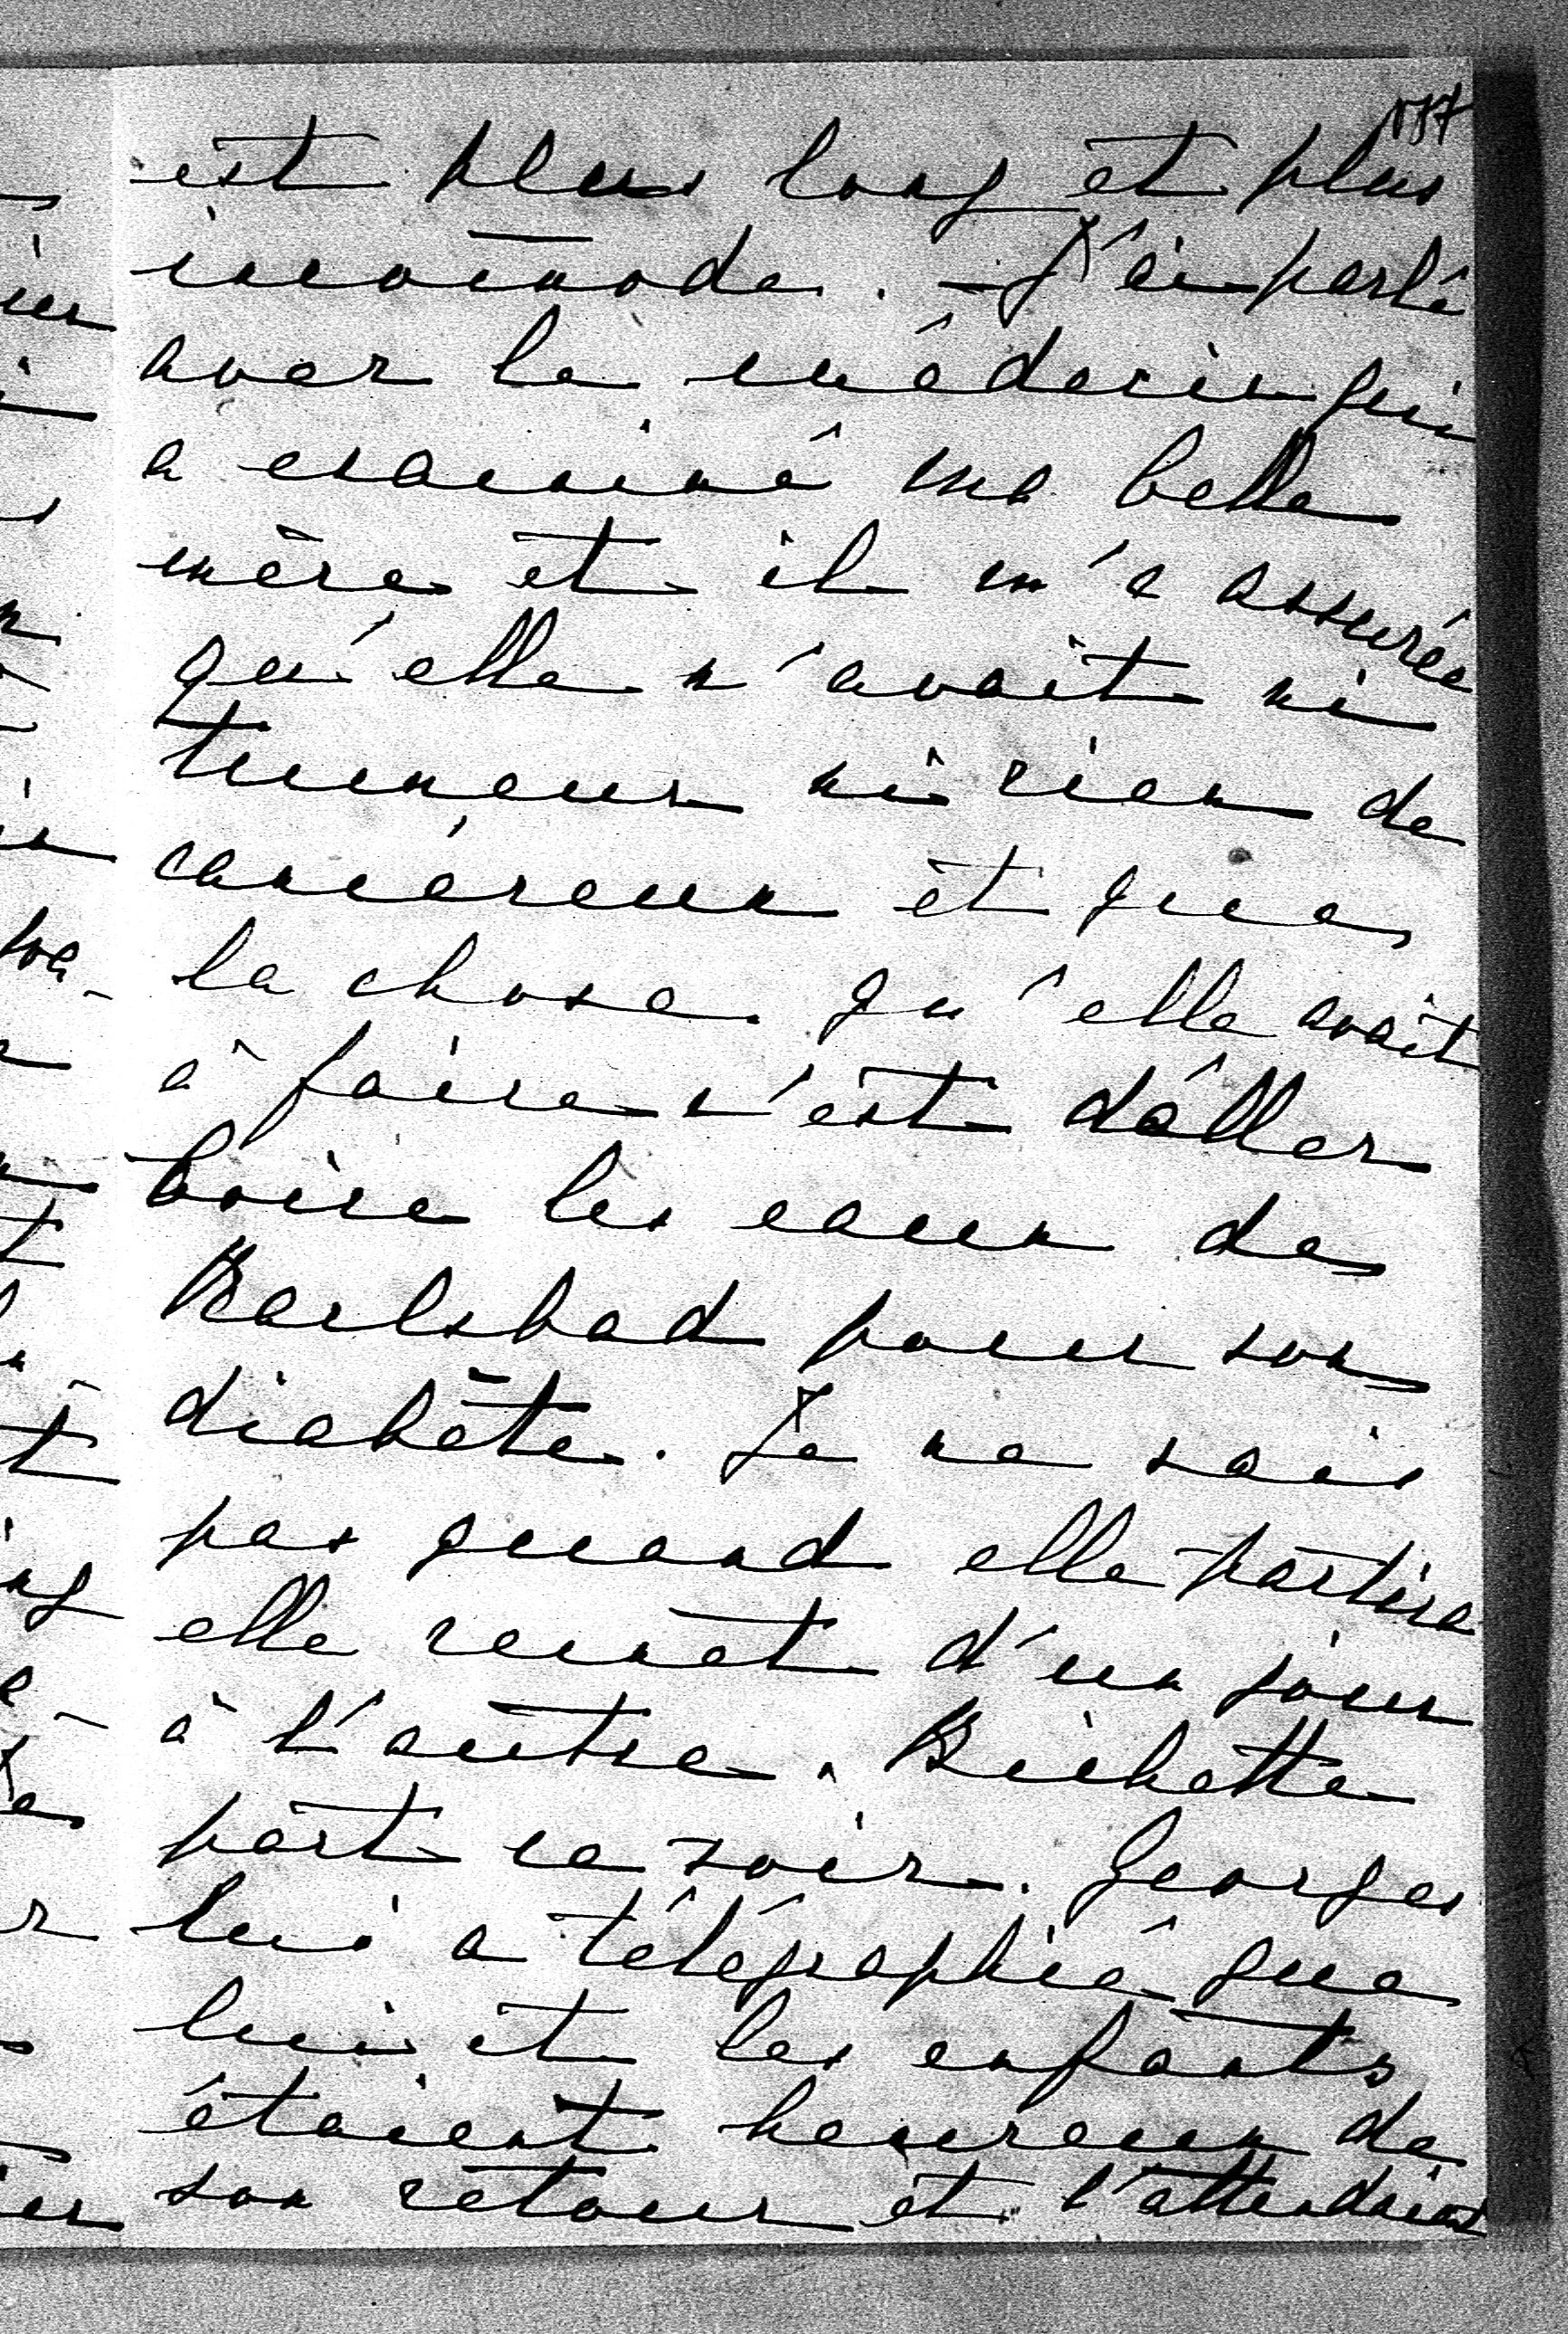 est plus long et plus
incomode. – J'ai parlé
avec le médecin qui
a examiné ma belle
mère et il m'a assurée
qu'elle n'avait ni
tumeur ni rien de
cancéreux et que
la chose qu'elle avait
à faire c'est d'aller
boire les eaux de
Karlsbad pour son
diabète. Je ne sais
pas quand elle partira
elle remet d'un jour
à l'autre. Bichette
part ce soir. Georges
lui a télégraphié que
lui et les enfants
étaient heureux de
son retour et l'attendaient